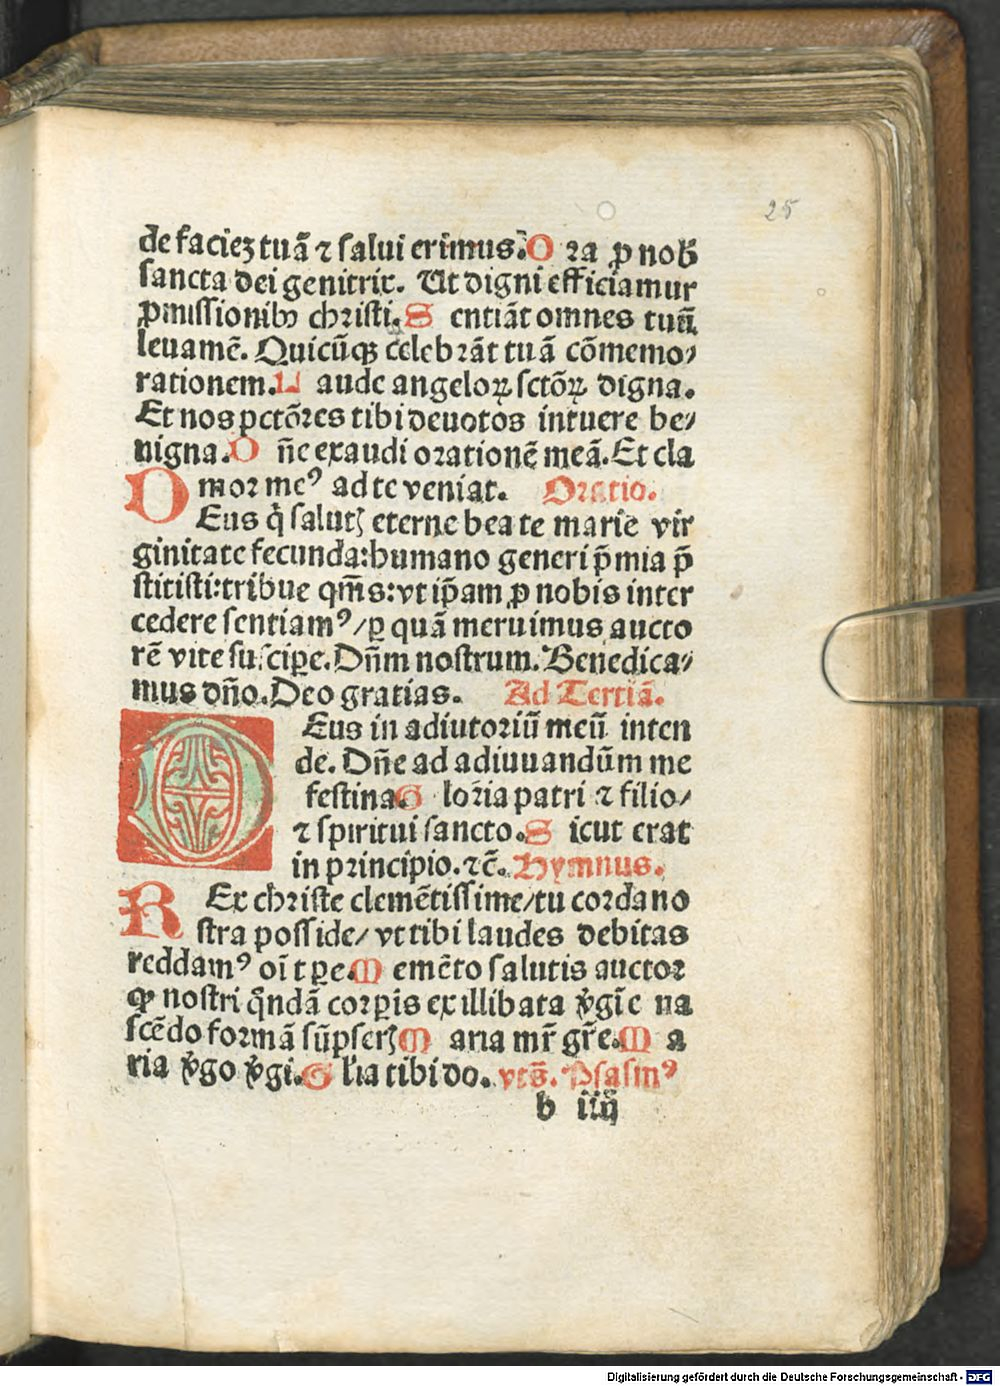 25
de facieʒ tuā ⁊ salui erimus. O ra ꝓ nob̄
sancta dei genitrix. Ut digni efficiamur
ꝓmissionibꝰ christi. S entiāt omnes tuū
leuamē. Quicūqꝫ celebrāt tuā cōmemo⸗
rationem. L aude angeloꝝ sctōꝝ digna.
Et nos pctōres tibi deuotos intuere be⸗
nigna. D ñe exaudi orationē meā. Et cla
mor meꝰ ad te veniat. Oratio.
DEus q̇ salutꝭ eterne beate marie vir
ginitate fecunda: humano generi p̄mia p̄
stitisti: tribue qm̄s: vt ip̄am ꝓ nobis inter
cedere sentiamꝰ/ ꝑ quā meruimus aucto
rē vite suscipe. Dn̄m nostrum. Benedica⸗
mus dño. Deo gratias. Ad Tertiā.
DEus in adiutoriū meū inten
de. Dñe ad adiuuandūm me
festina. G loria patri ⁊ filio/
⁊ spiritui sancto. S icut erat
in principio. ⁊c̄. Hymnus.
REx christe clemētissime/ tu corda no
stra posside/ vt tibi laudes debitas
reddamꝰ oī tꝑe. M emēto salutis auctor
qꝫ nostri q̄ndā corꝑis ex illibata ꝟgīe na
scēdo formā sūpserꝭ M aria mr̄ gr̄e. M a
ria ꝟgo ꝟgi. G l'ia tibi do. vts̄. Psalmꝰ
b iiij
Digitalisierung gefördert durch die Deutsche Forschungsgemeinschaft - DFG